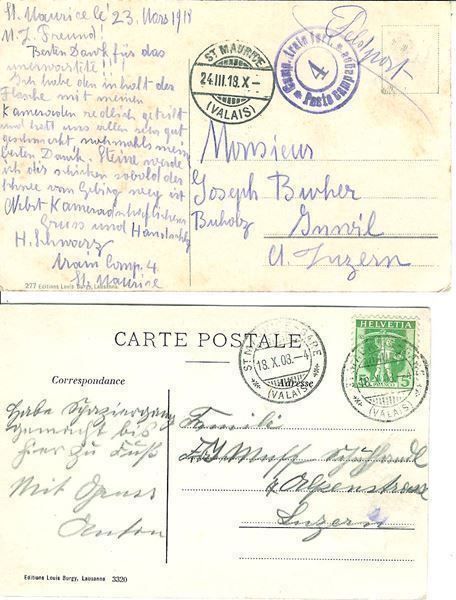 St. Maurice le 23. Mars 1918
M. L. Freund!
Besten Dank für das
unerwartete!!
Ich habe den inhalt der
Flasche mit meinen
Kameraden redlich geteilt
und hatt uns allen sehr gut
geschmeckt nochmals mein
besten Dank. Steine werde
ich dir schicken sobald der
Schnee vom Gebirg weg ist
Nebst Kameradschaftlichem
Gruss und Handschlag
H. Schwarz
train Comp. 4
St. Maurice
277 Editions Louis Burgy, Lausanne.
ST MAURICE
24.III.18.X-
(VALAIS)
4
Poste campagne
Feldpost
Monsieur
Joseph Bucher
Buholz Inwil
Ct. Luzern
CARTE POSTALE
Correspondance
Adresse
ST MAURICE GARE
18.X.08.-4
(VALAIS)
HELVETIA
5
(VALAIS)
Habe Spaziergang
gemacht bis
hier zu Fuss
Mit Gruss
Anton
Familie
Muff
Alpenstrasse
Luzern
Editions Louis Burgy, Lausanne 3320